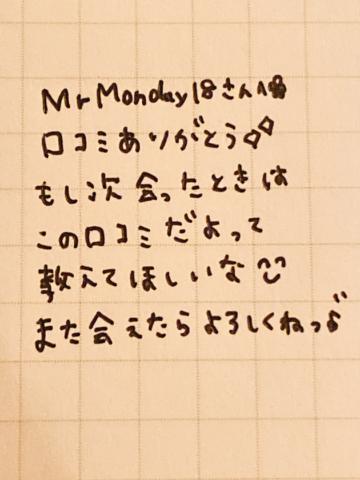 Mr Monday 18さんへ
口コミありがとう
もし次会ったときは
この口コミだよって
教えてほしいな
また会えたらよろしくねっ